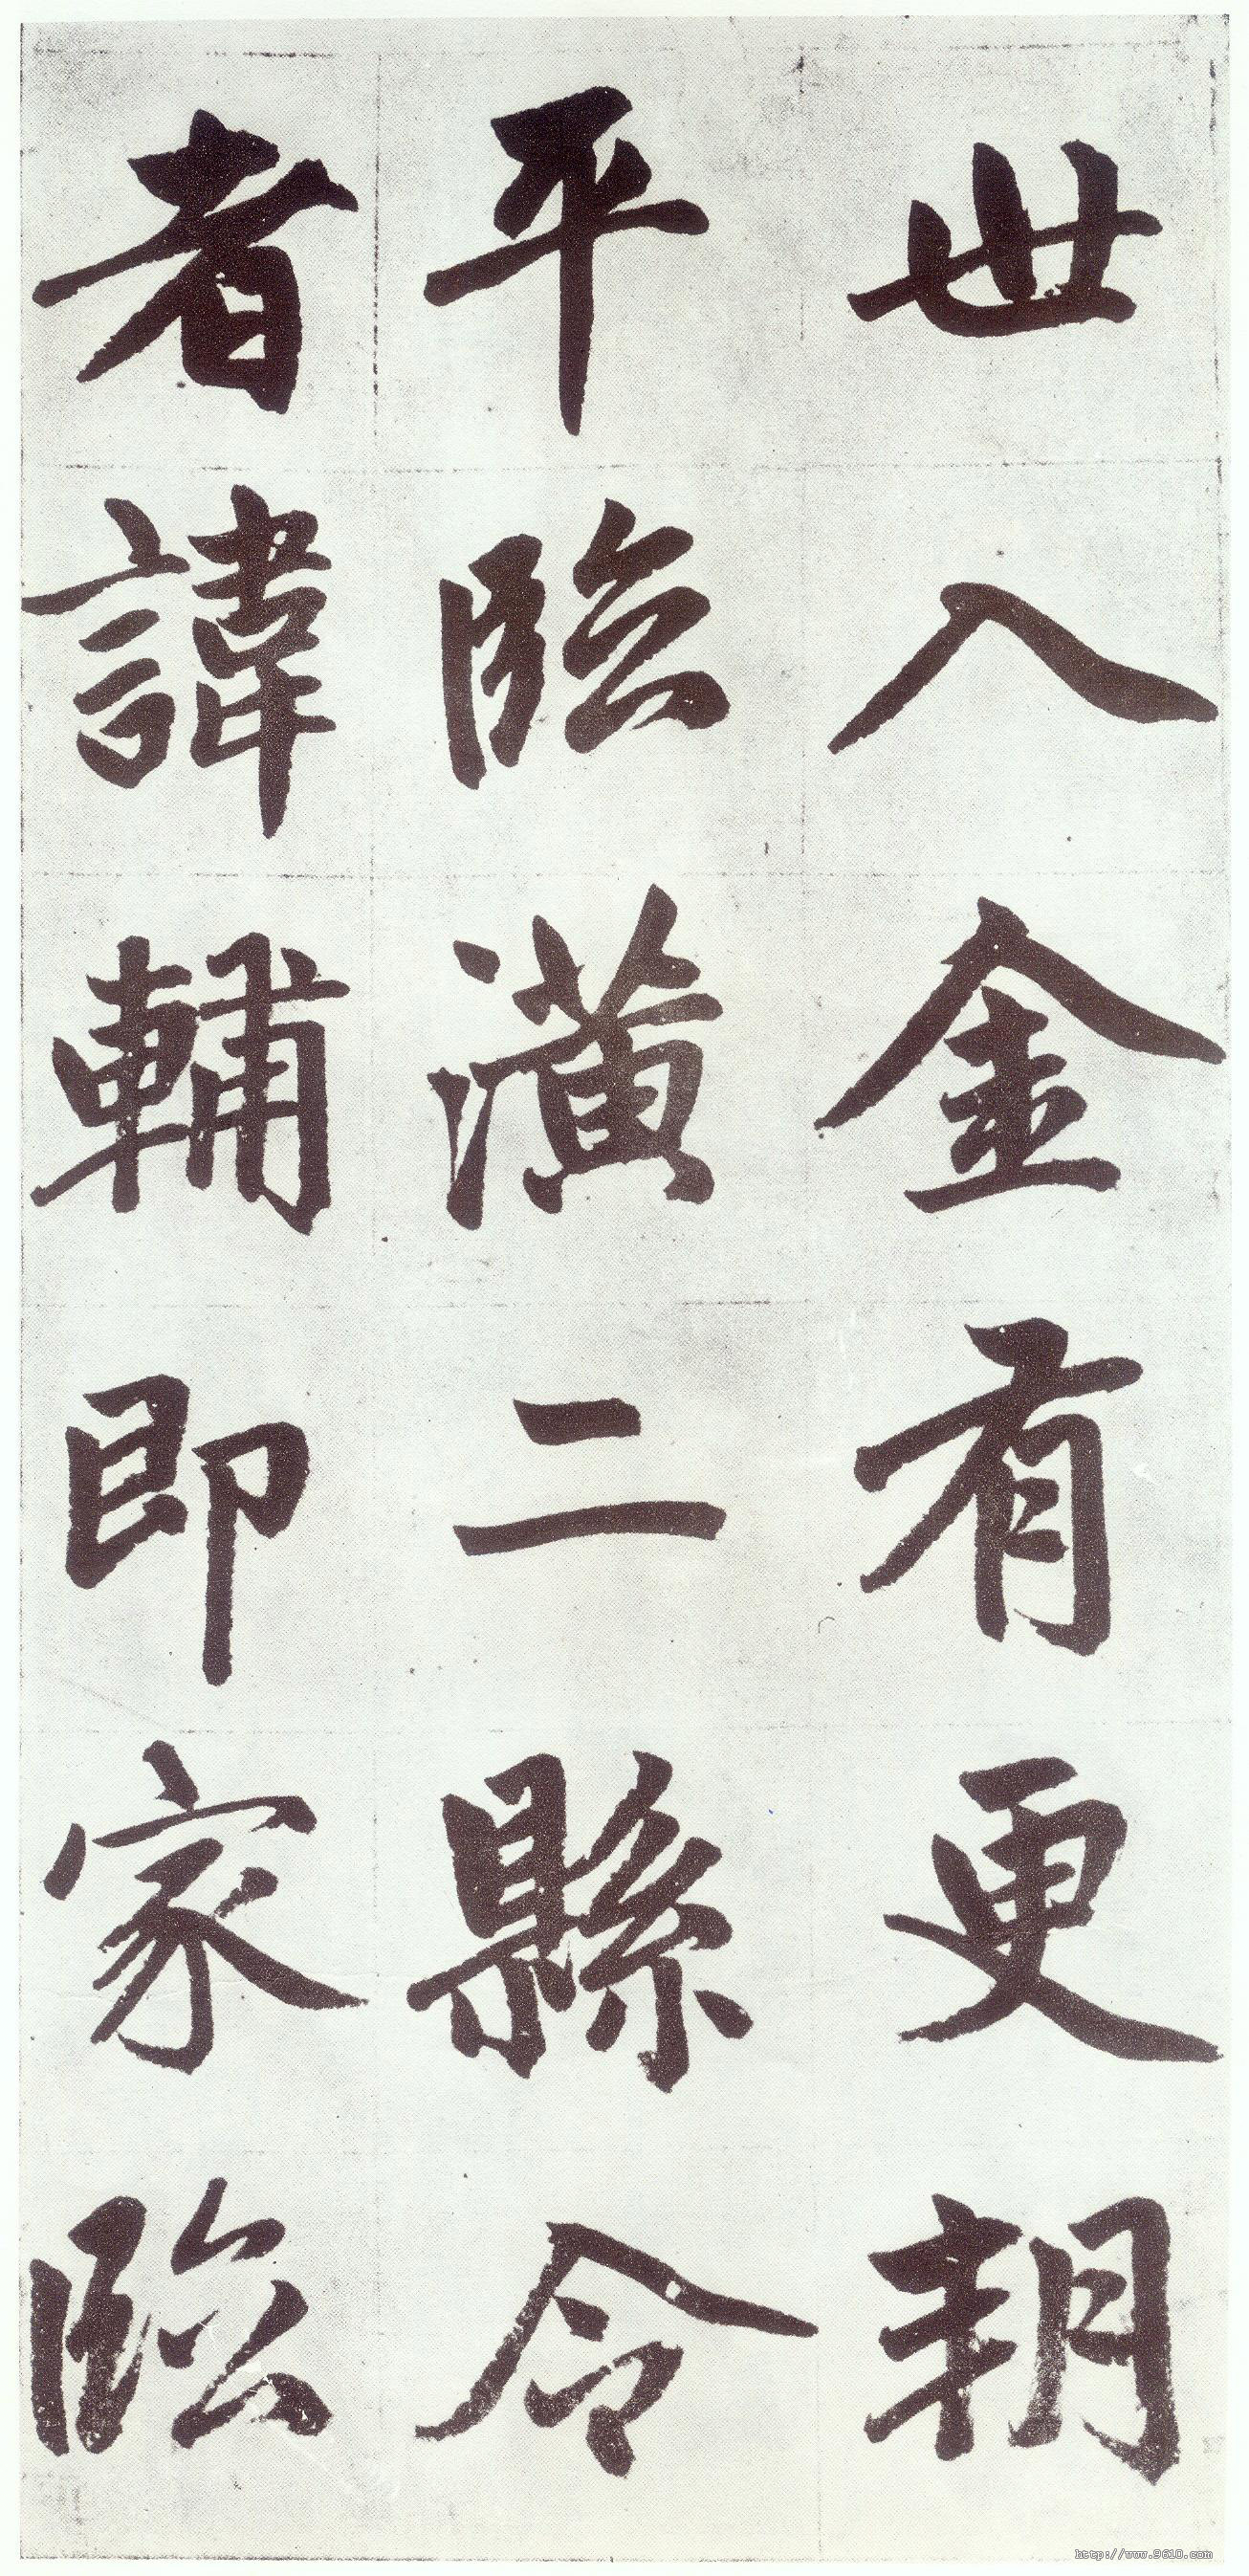 世入金有更朔
平臨潢二縣令
者諱輔即家臨
http://www.9610.com